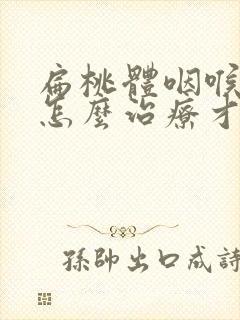 扁桃體咽喉
怎麼治療才
孫帥出口成詩